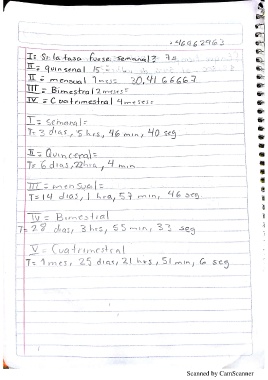 +46962963
I= Si la tasa fuese semanal? 7d
II= quinsenal 15
II= mensual 1 mes 30,4166667
III= Bimestral 2 meses
IV= Cuatrimestral 4 meses
I= Semanal=
T= 3 dias, 5 hrs, 46 min, 40 seg
II= Quincenal=
T= 6 dias, 22 hra, 4 min
III= mensual=
T= 14 dias, 1 hra, 57 min, 46 seg
IV= Bimestral
T= 28 dias, 3 hrs, 55 min, 33 seg
V= Cuatrimestral
T= 1 mes, 25 dias, 21 hrs, 51 min, 6 seg
Scanned by CamScanner